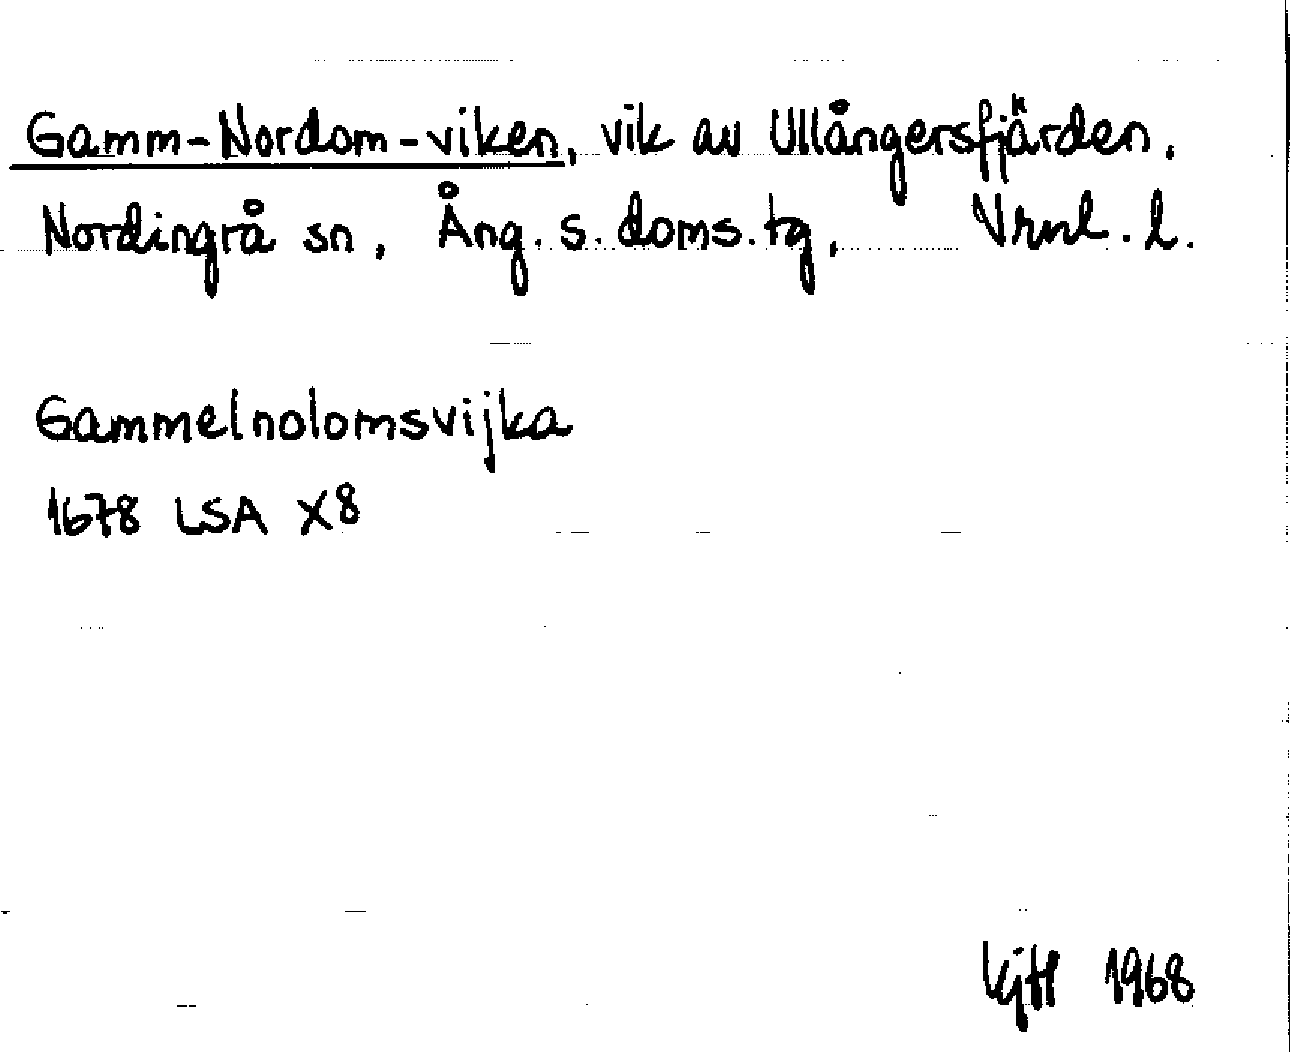 Gamm-Nordom-viken, vik av Ullångersfjärden,
Nordingrå sn, Ång. s. doms. tg, Vrnl. l.
Gammelnolomsvijka
1678 LSA X8
1968